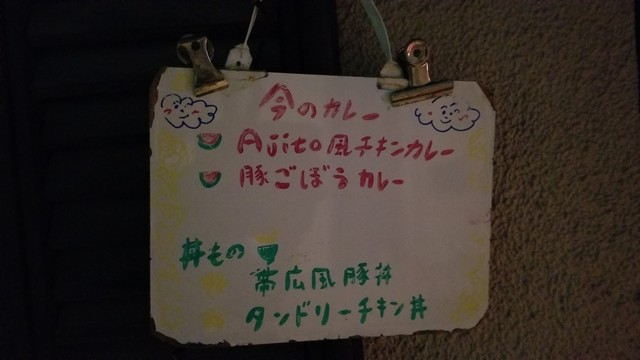 今のカレー
Ajito風チキンカレー
豚ごぼうカレー
丼もの
帯広風豚丼
タンドリーチキン丼